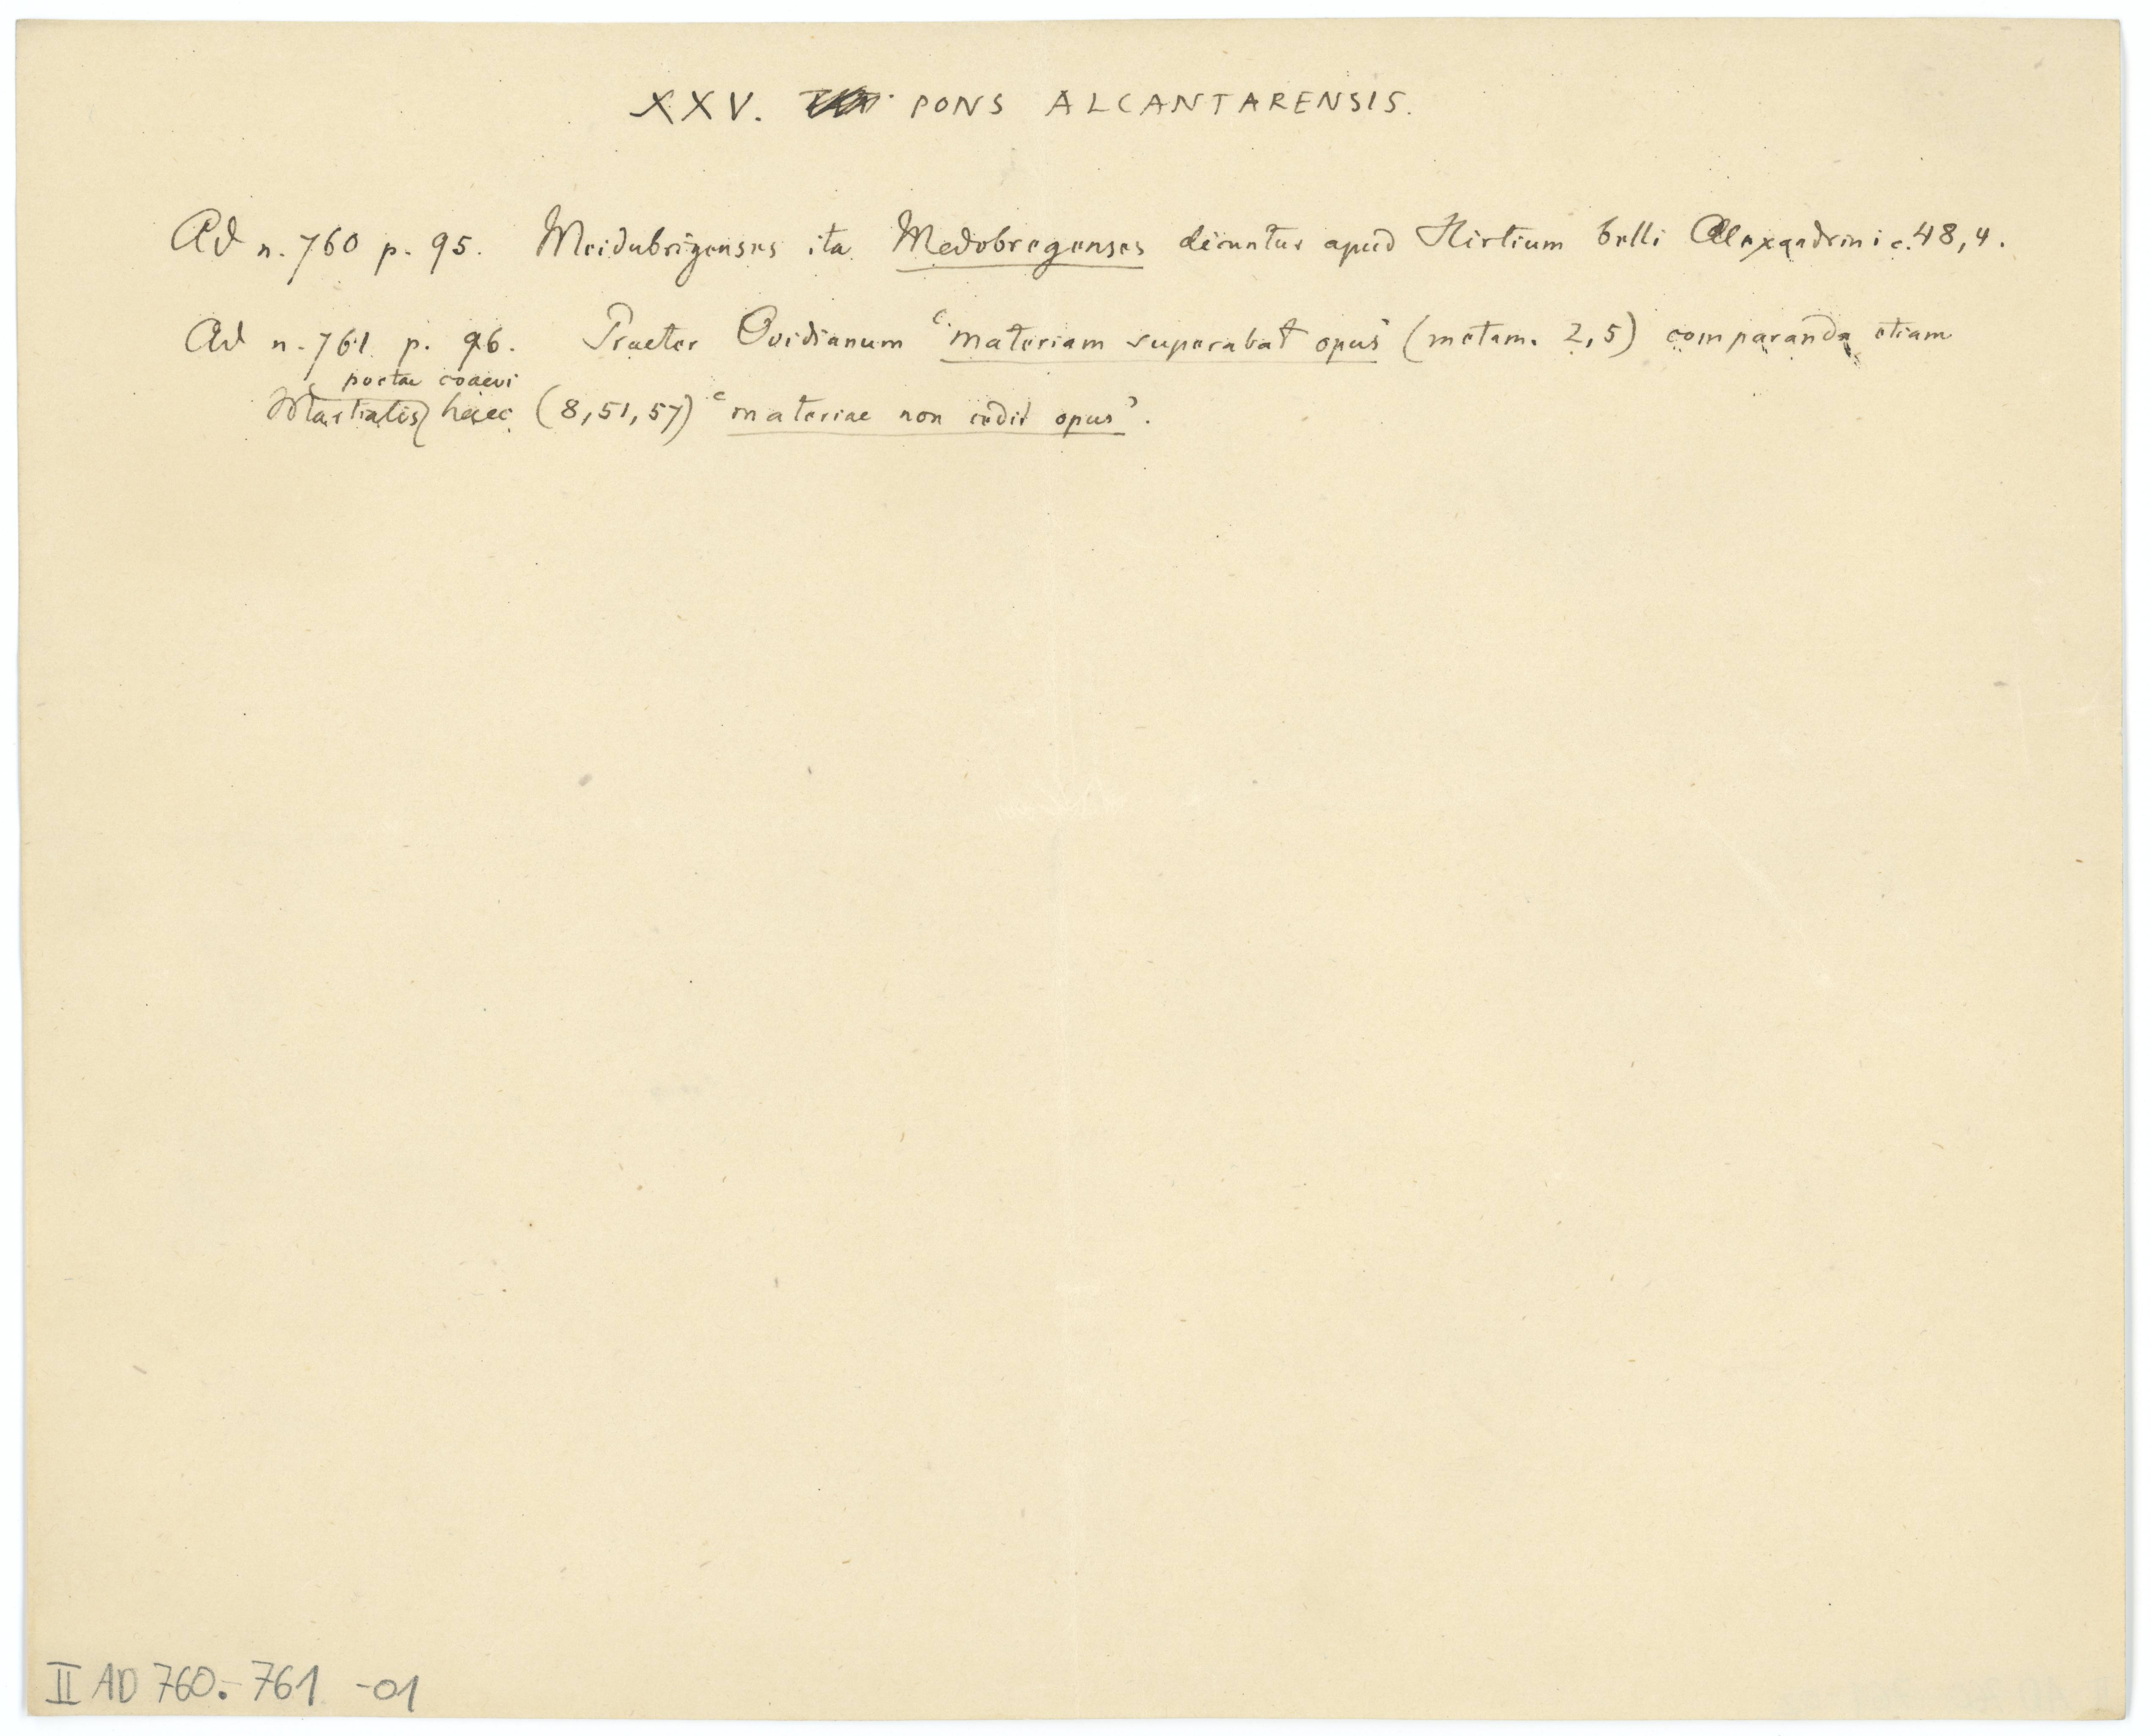 XXV. PONS ALCANTARENSIS.
Ad n. 760 p. 95. Meidubrigenses ita Medobregenses dicuntur apud Hirtium belli Alexandrini c. 48,4.
Ad n. 761 p. 96. Praeter Ovidianum ‘materiam superabat opus’ (metam. 2,5) comparanda etiam
poetae coaevi
Martialis haec (8,51,57) ‘materiae non cedit opus’.
II AD 760.-761 -01